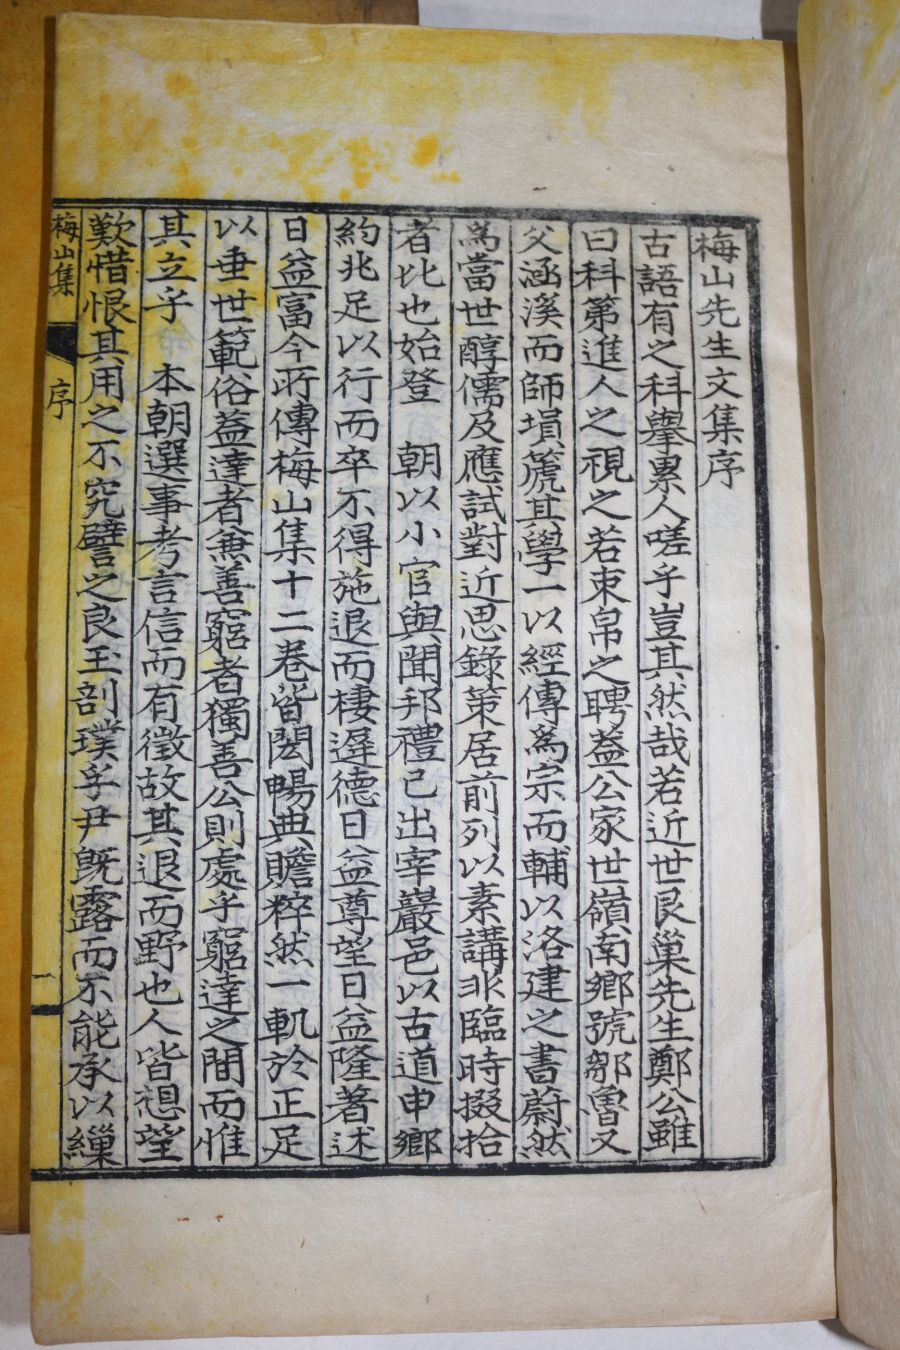 梅山先生文集序
古語有之科擧累人嗟乎豈其然哉若近世艮巢先生鄭公雖
曰科第進人之視之若束帛之聘葢公家世嶺南鄕號鄒魯又
父涵溪而師塤篪其學一以經傳爲宗而輔以洛建之書蔚然
爲當世醇儒及應試對近思錄策居前列以素講非臨時掇拾
者比也始登 朝以小官與聞邦禮已出宰巖邑以古道申鄕
約兆足以行而卒不得施退而棲遲德日益尊望日益隆著述
日益富今所傳梅山集十二卷皆閎暢典贍粹然一軌於正足
以垂世範俗葢達者兼善窮者獨善公則處乎窮達之間而惟
其立乎 本朝選事考言信而有徵故其退而野也人皆想望
歎惜恨其用之不究譬之良玉剖璞孚尹旣露而不能承以繅
梅山集 序